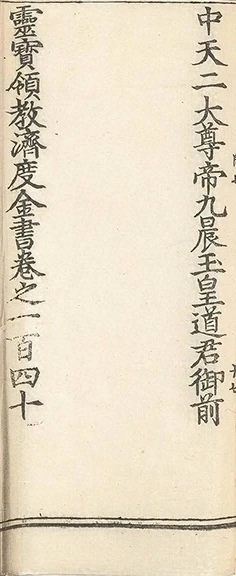 中天二大尊帝九晨玉皇道君御前
靈寶領教濟度金書卷之一百四十